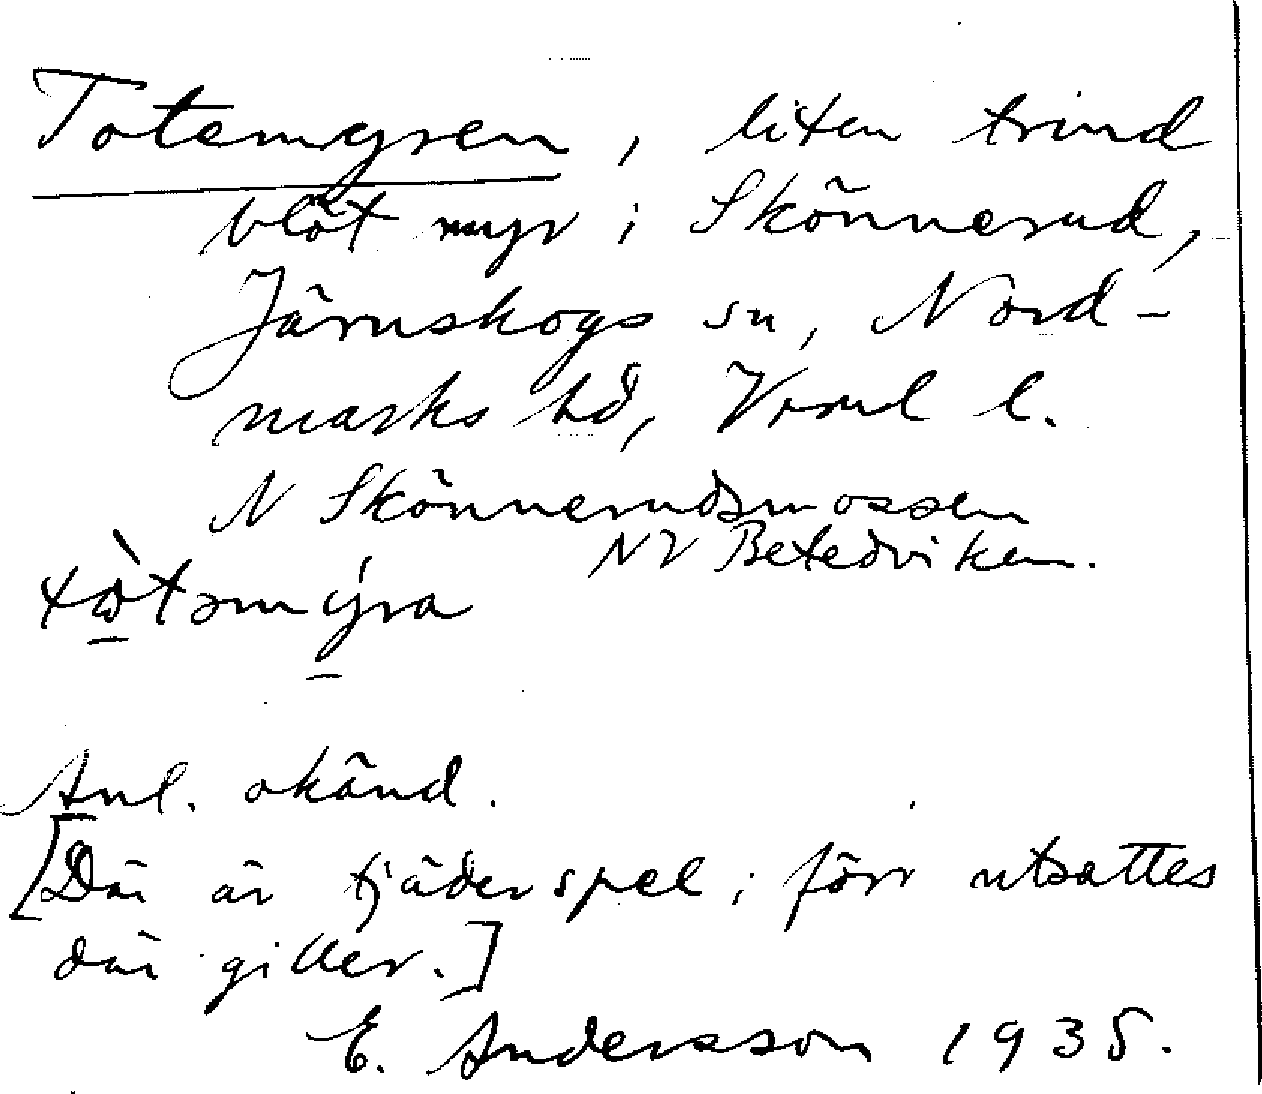 Totemyren, liten trind
blöt myr i Skönnerud,
Järnskogs sn, Nord-
marks hd, Vrml l.
N Skönnerudsmossen
NV Beted viken.
tòtəmýra
Anl. okänd.
[Där är tjäderspel; förr utsattes
där giller.]
E. Andersson 1935.